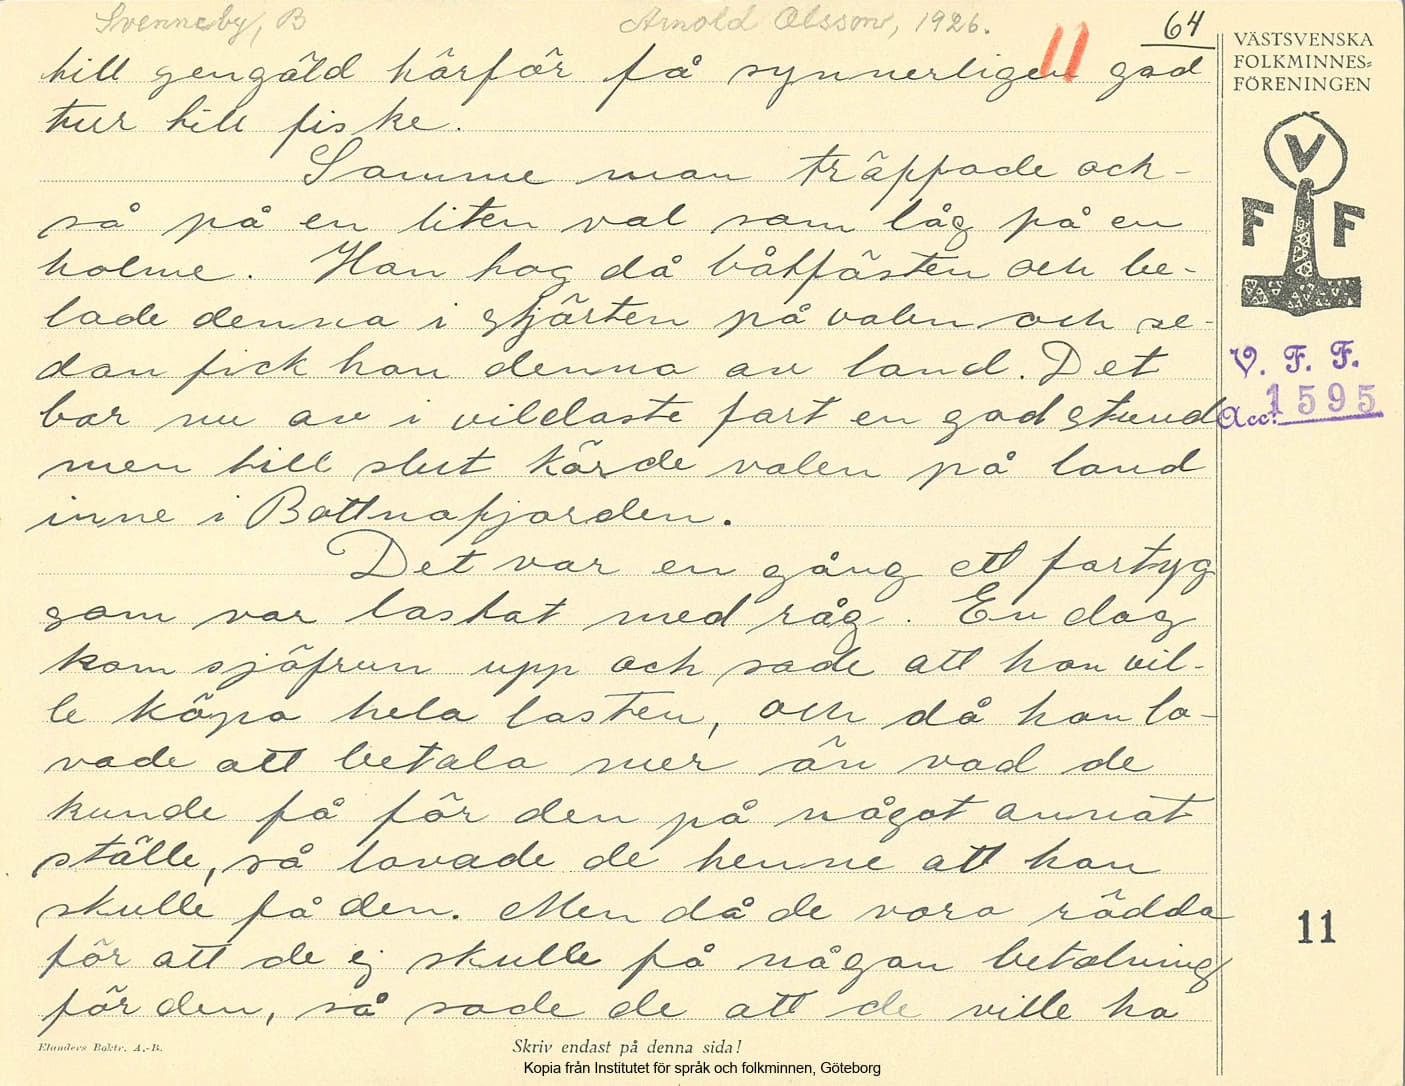 Svenneby, B
Arnold Olsson, 1926.
64
11
till gengäld härför få synnerligen god
tur till fiske.
Samme man träppade ock-
så på en liten val som låg på en
holme. Han hog då båtfästen och be-
lade denna i stjärten på valen och se-
dan fick han denna av land. Det
bar nu av i vildaste fart en god stund
men till slut körde valen på land
inne i Bottnafjorden.
Det var en gång ett fartyg
som var lastat med råg. En dag
kom sjöfrun upp och sade att hon vil-
le köpa hela lasten, och då hon lo-
vade att betala mer än vad de
kunde få för den på något annat
ställe, så lovade de henne att hon
skulle få den. Men då de voro rädda
för att de ej skulle få någon betalning
för den, så sade de att de ville ha
VÄSTSVENSKA
FOLKMINNES=
FÖRENINGEN
V
F F
V. F. F.
Acc: 1595
11
Elanders Boktr. A.-B.
Skriv endast på denna sida!
Kopia från Institutet för språk och folkminnen, Göteborg